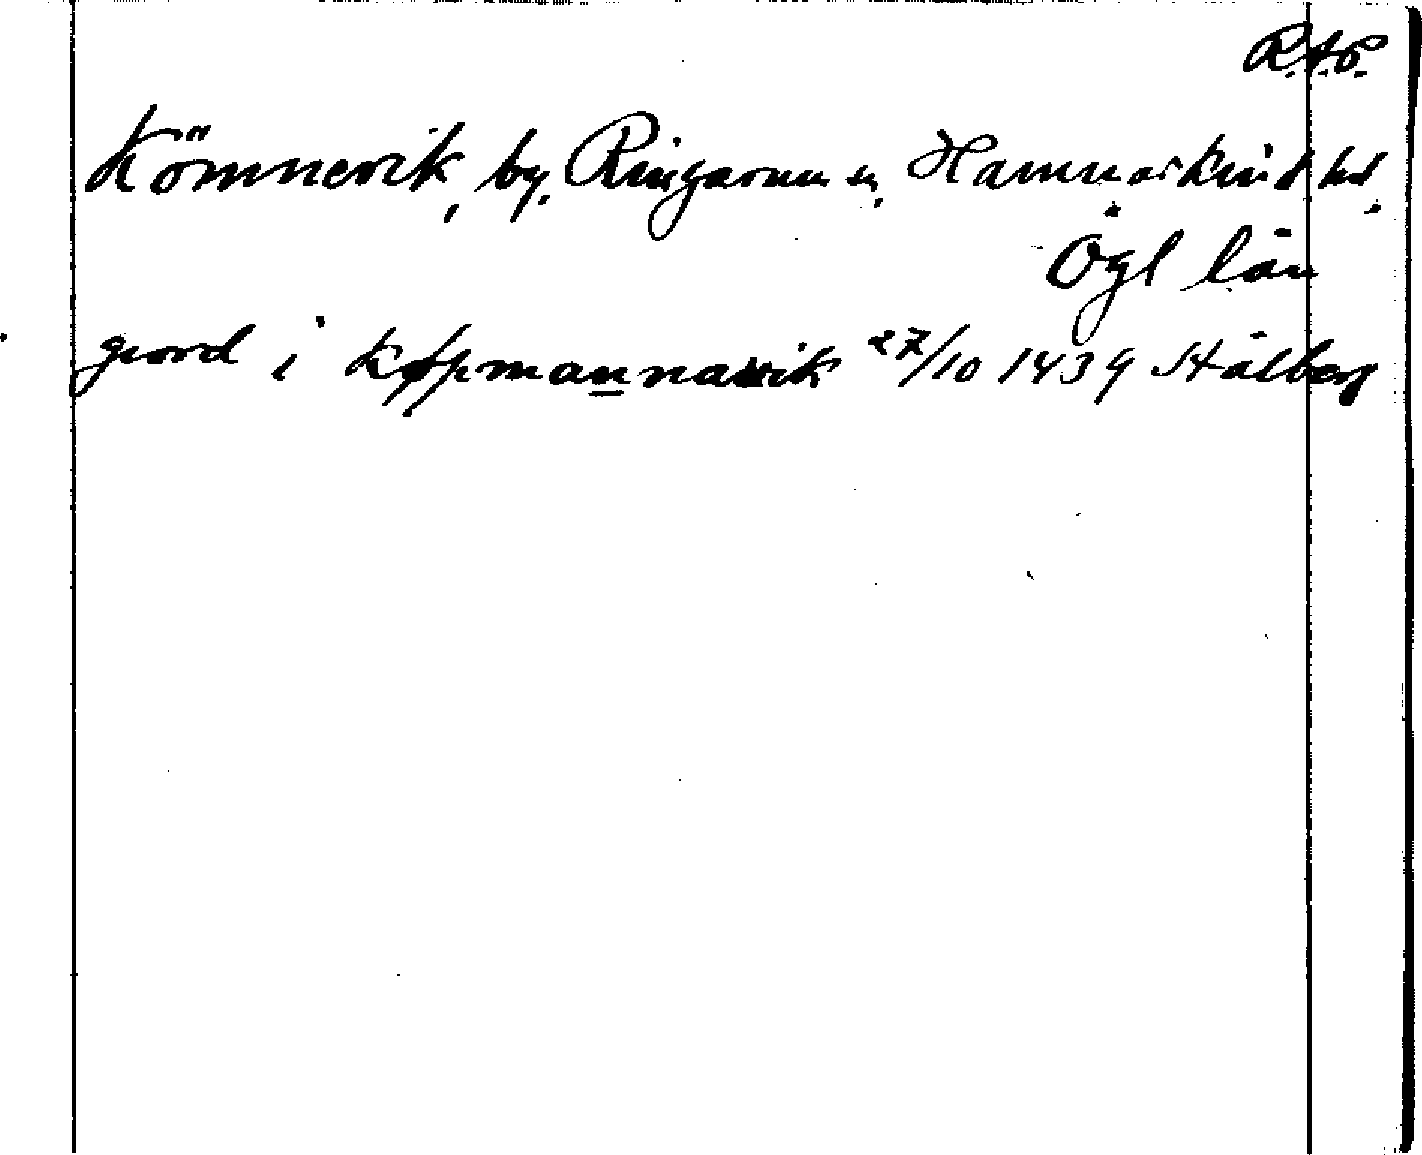 R.A.P.
Kömnevik, by, Ringarum sn, Hammarkind hd.
Ögl län
giord i Køpmannawik 27/10 1439 Stålberg